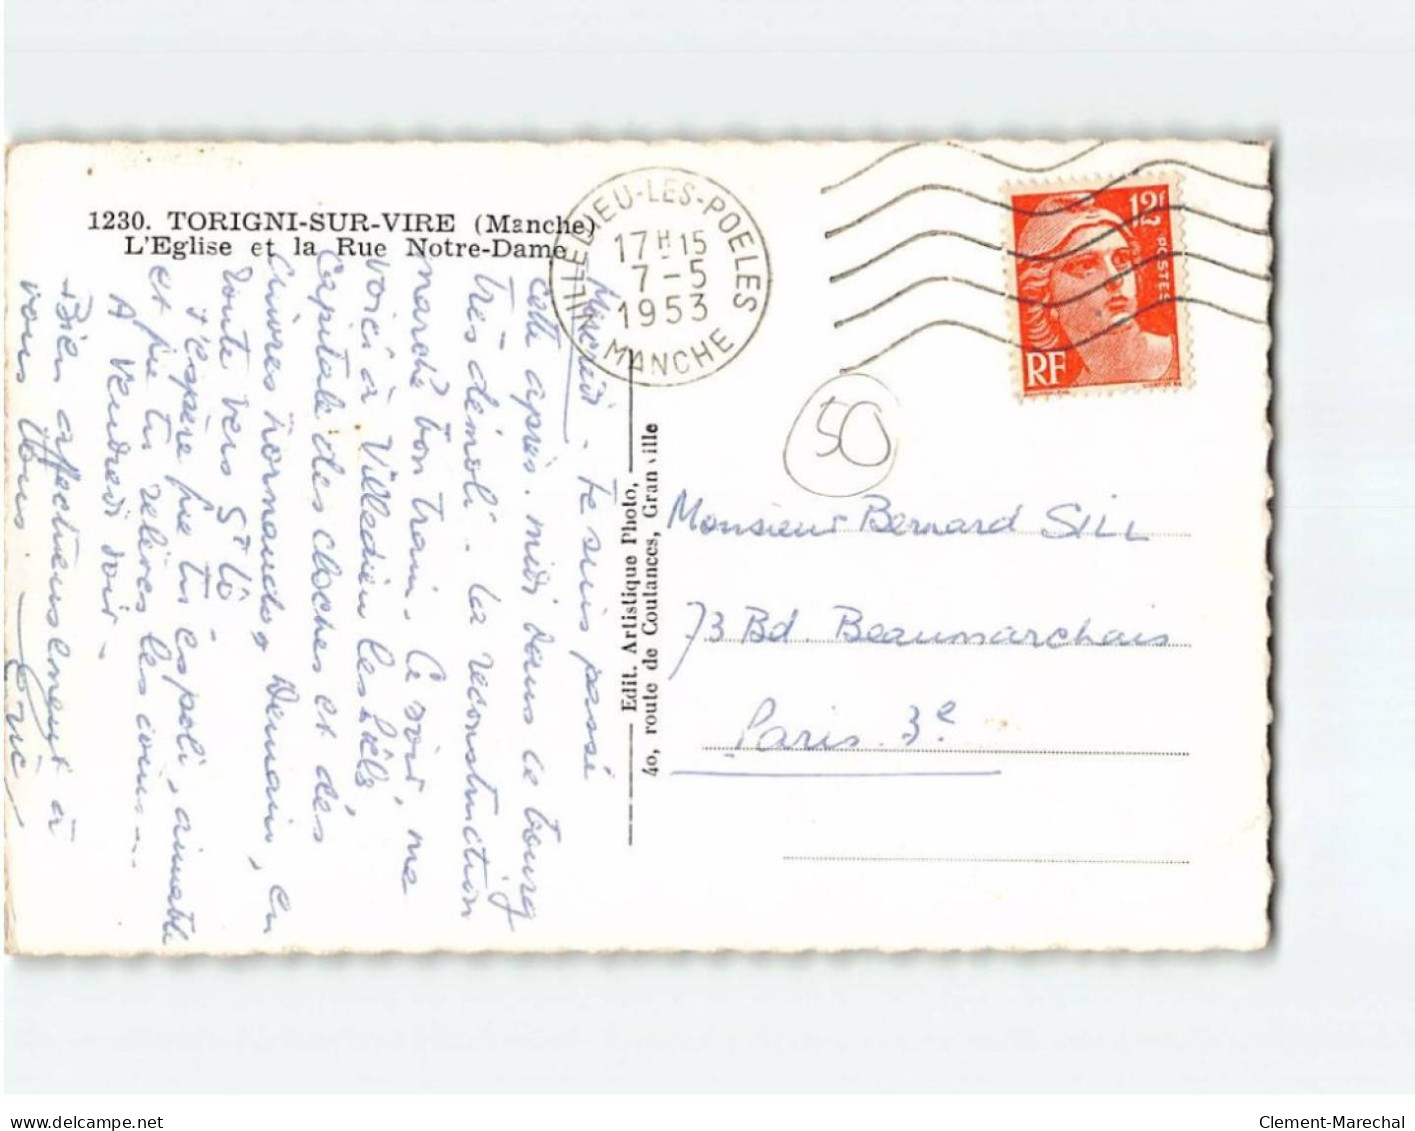 1230. TORIGNI-SUR-VIRE (Manche)
L'Eglise et la Rue Notre-Dame
Mercredi - Je suis passé
cette après-midi dans ce bourg
très démoli. La reconstruction
marche bon train. Ce soir, me
voici à Villedieu les Poëls,
Capitale des cloches et des
cuivres normands. Demain, en
route vers St Lô -
J'espère que tu es poli, aimable
et que tu relèves les coins...
A vendredi soir -
Bien affectueusement à
vous tous.
VILLEDIEU-LES-POELES
17H15
7-5
1953
MANCHE
12F
POSTES
RF
50
Edit. Artistique Photo,
40, route de Coutances, Granville
Monsieur Bernard SILL
73 Bd. Beaumarchais
Paris. 3e
Clement-Marechal